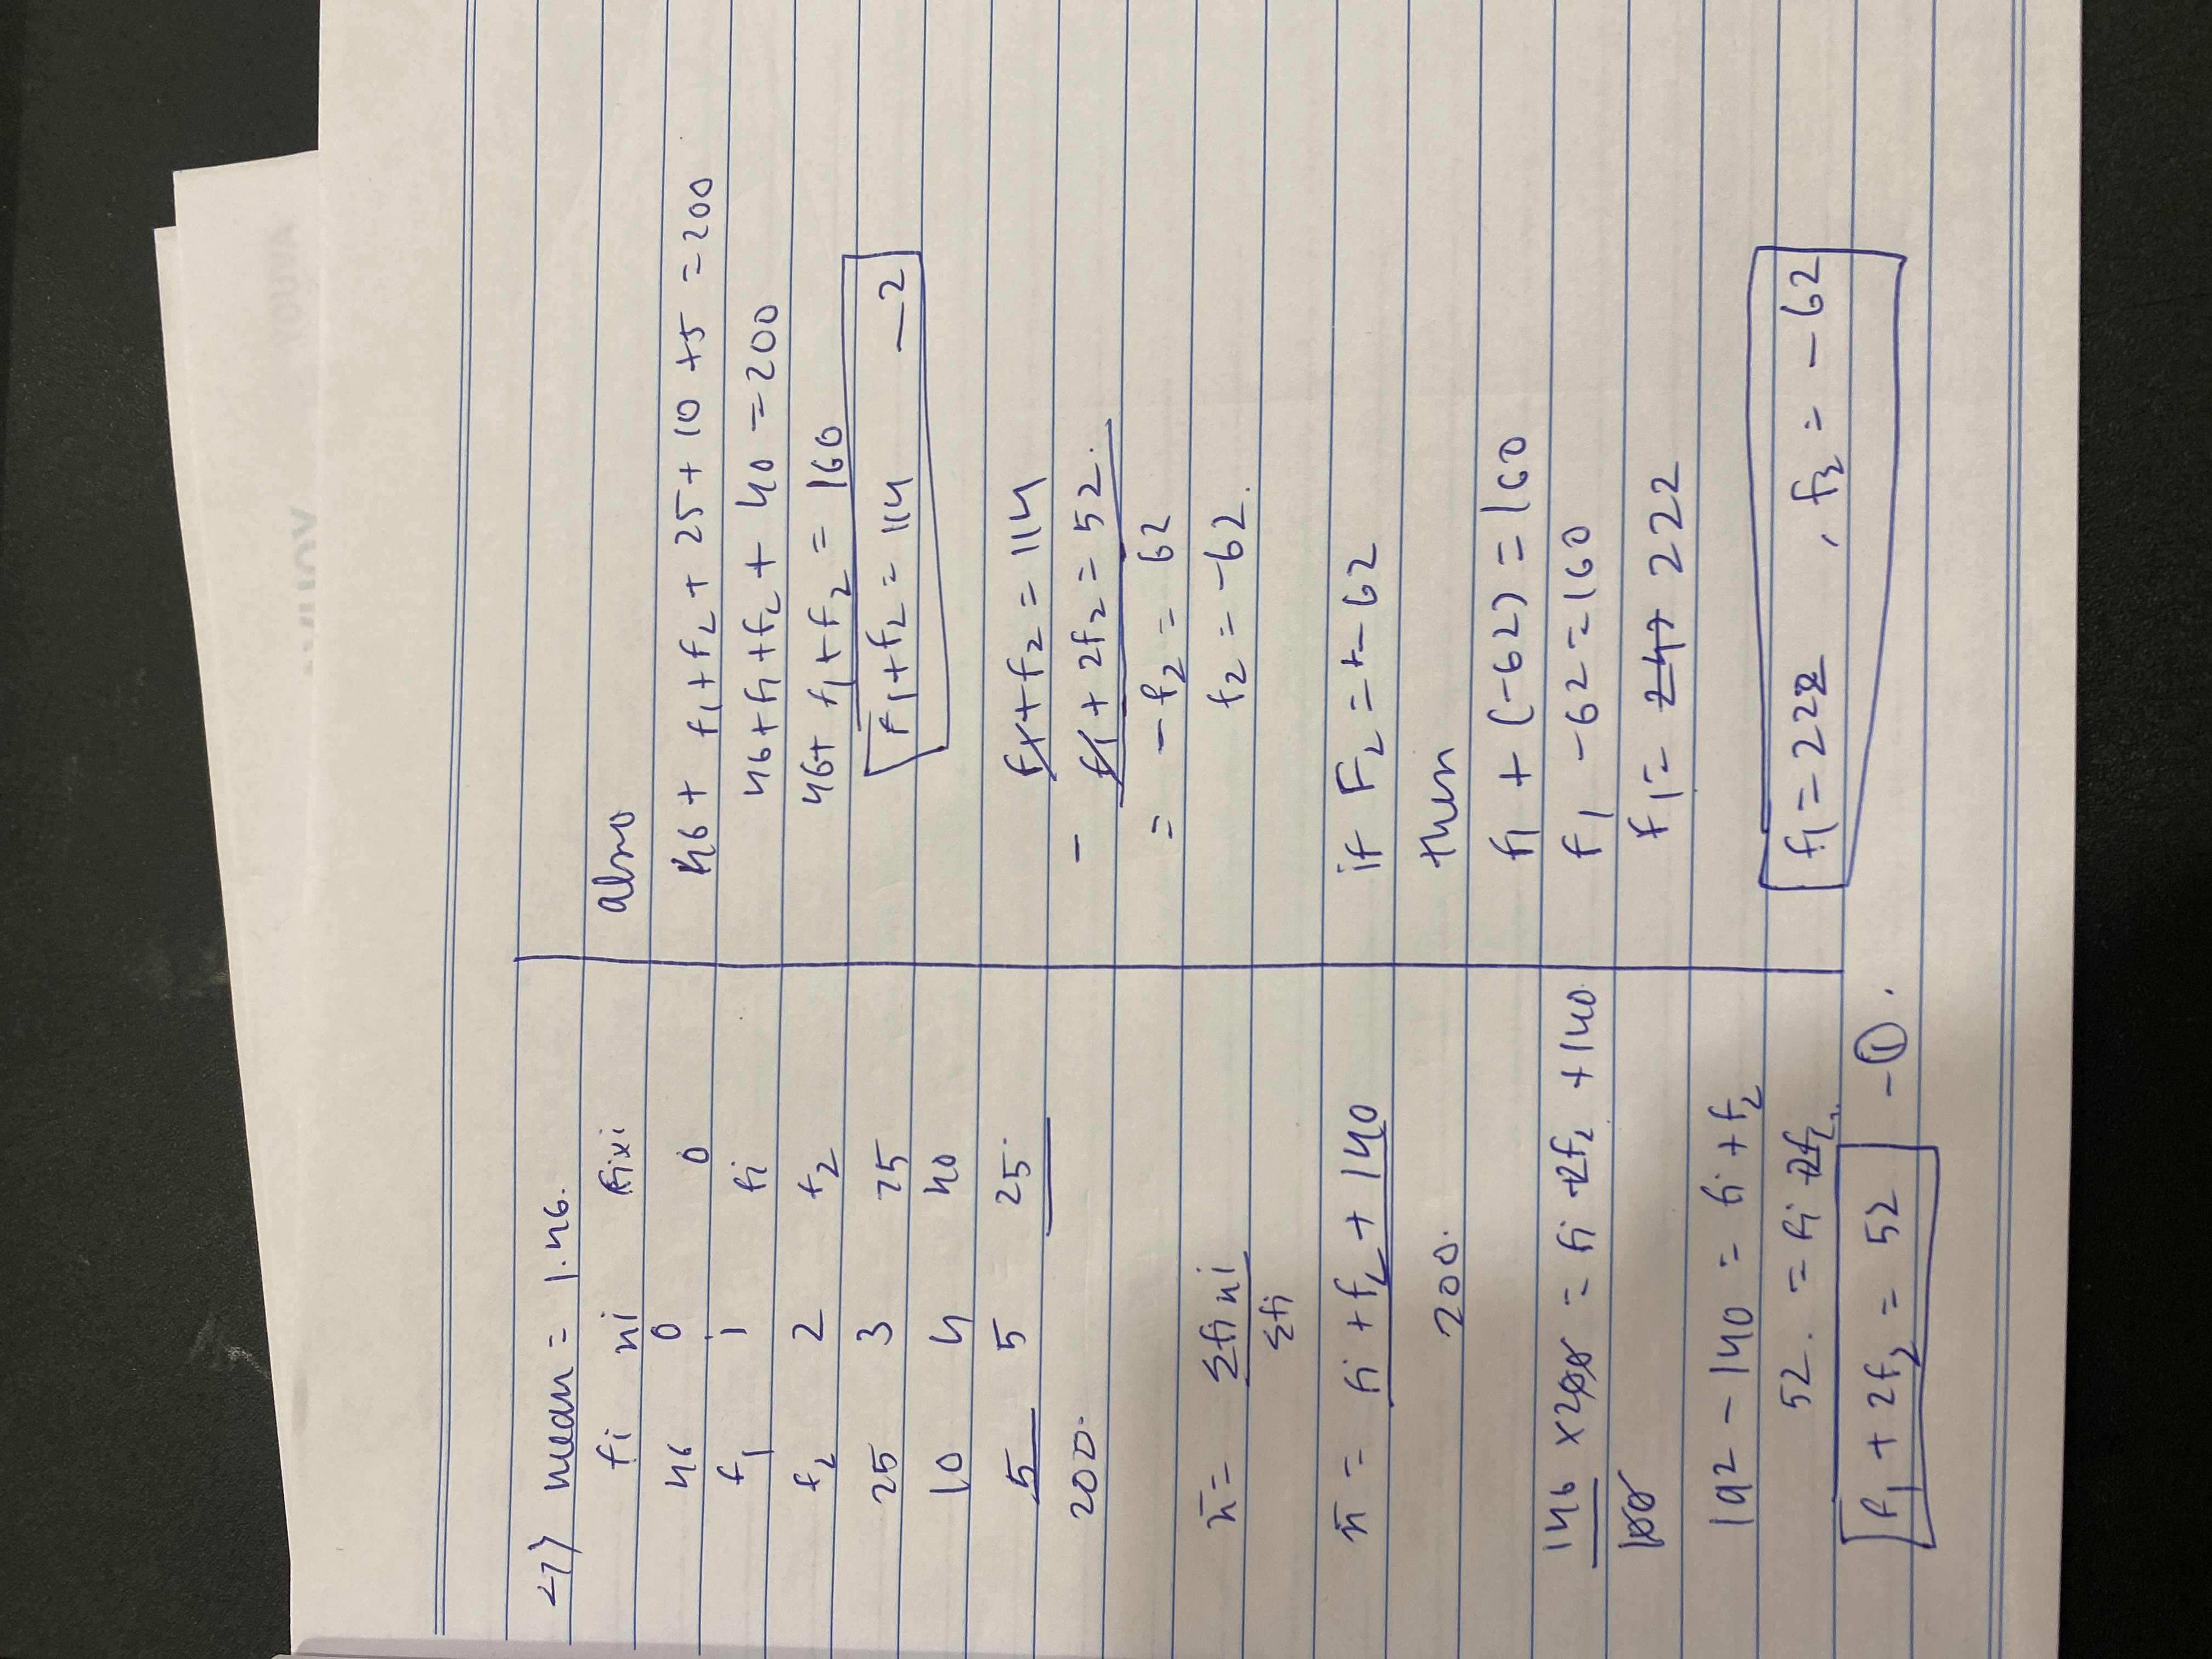 27) mean = 1.46.
fi xi fixi
46 0 0
f1 1 fi
f2 2 f2
25 3 75
10 4 40
5 5 25.
200.
x̄ = Σfixi
Σfi
x̄ = fi + f2 + 140
200.
146 x 200 = fi + 2f2 + 140
100
192 - 140 = fi + f2
52. = fi + 2f2.
f1 + 2f2 = 52 - ①.
also
46 + f1 + f2 + 25 + 10 + 5 = 200
46 + f1 + f2 + 40 = 200
46 + f1 + f2 = 160
f1 + f2 = 114 — 2
f1 + f2 = 114
- f1 + 2f2 = 52.
= - f2 = 62
f2 = -62.
if F2 = -62
then
f1 + (-62) = 160
f1 - 62 = 160
f1 = 222
f1 = 222, f2 = -62